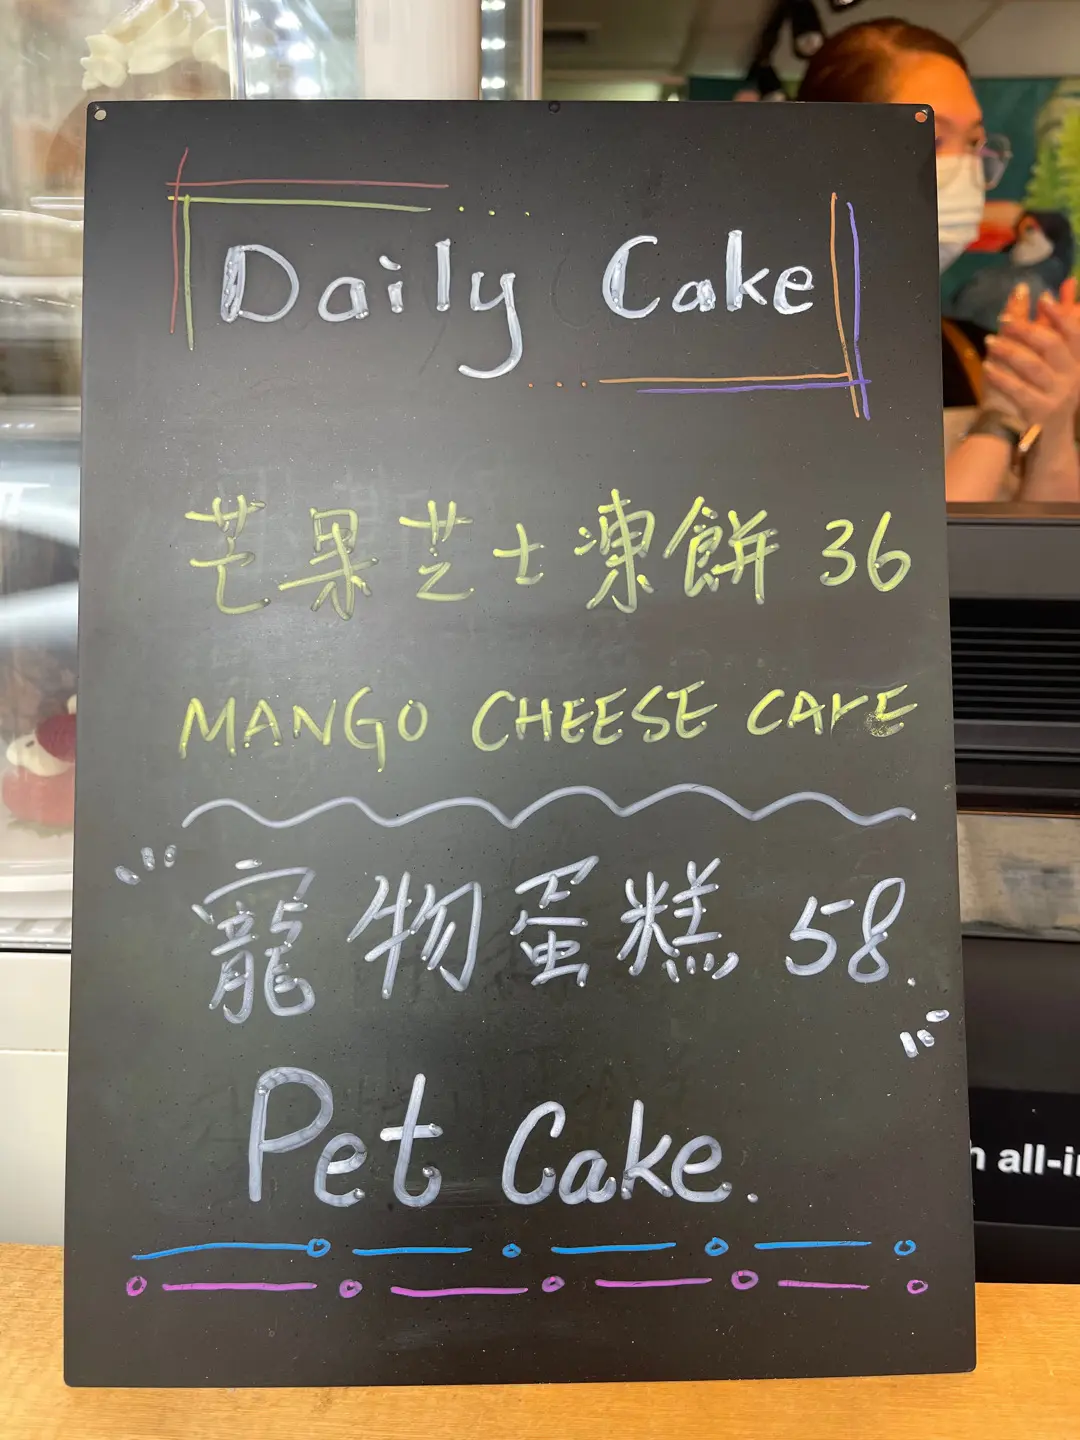 Daily Cake
芒果芝士凍餅 36
MANGO CHEESE CAKE
寵物蛋糕 58.
Pet Cake.
all-i